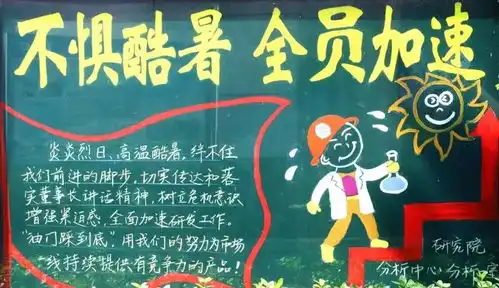 不惧酷暑 全员加速
炎炎烈日、高温酷暑,绊不住
我们前进的脚步,切实传达和落
实董事长讲话精神,树立危机意识
增强紧迫感,全面加速研发工作。
"油门踩到底",用我们的努力为市场
一线持续提供有竞争力的产品!
研究院
分析中心分析室